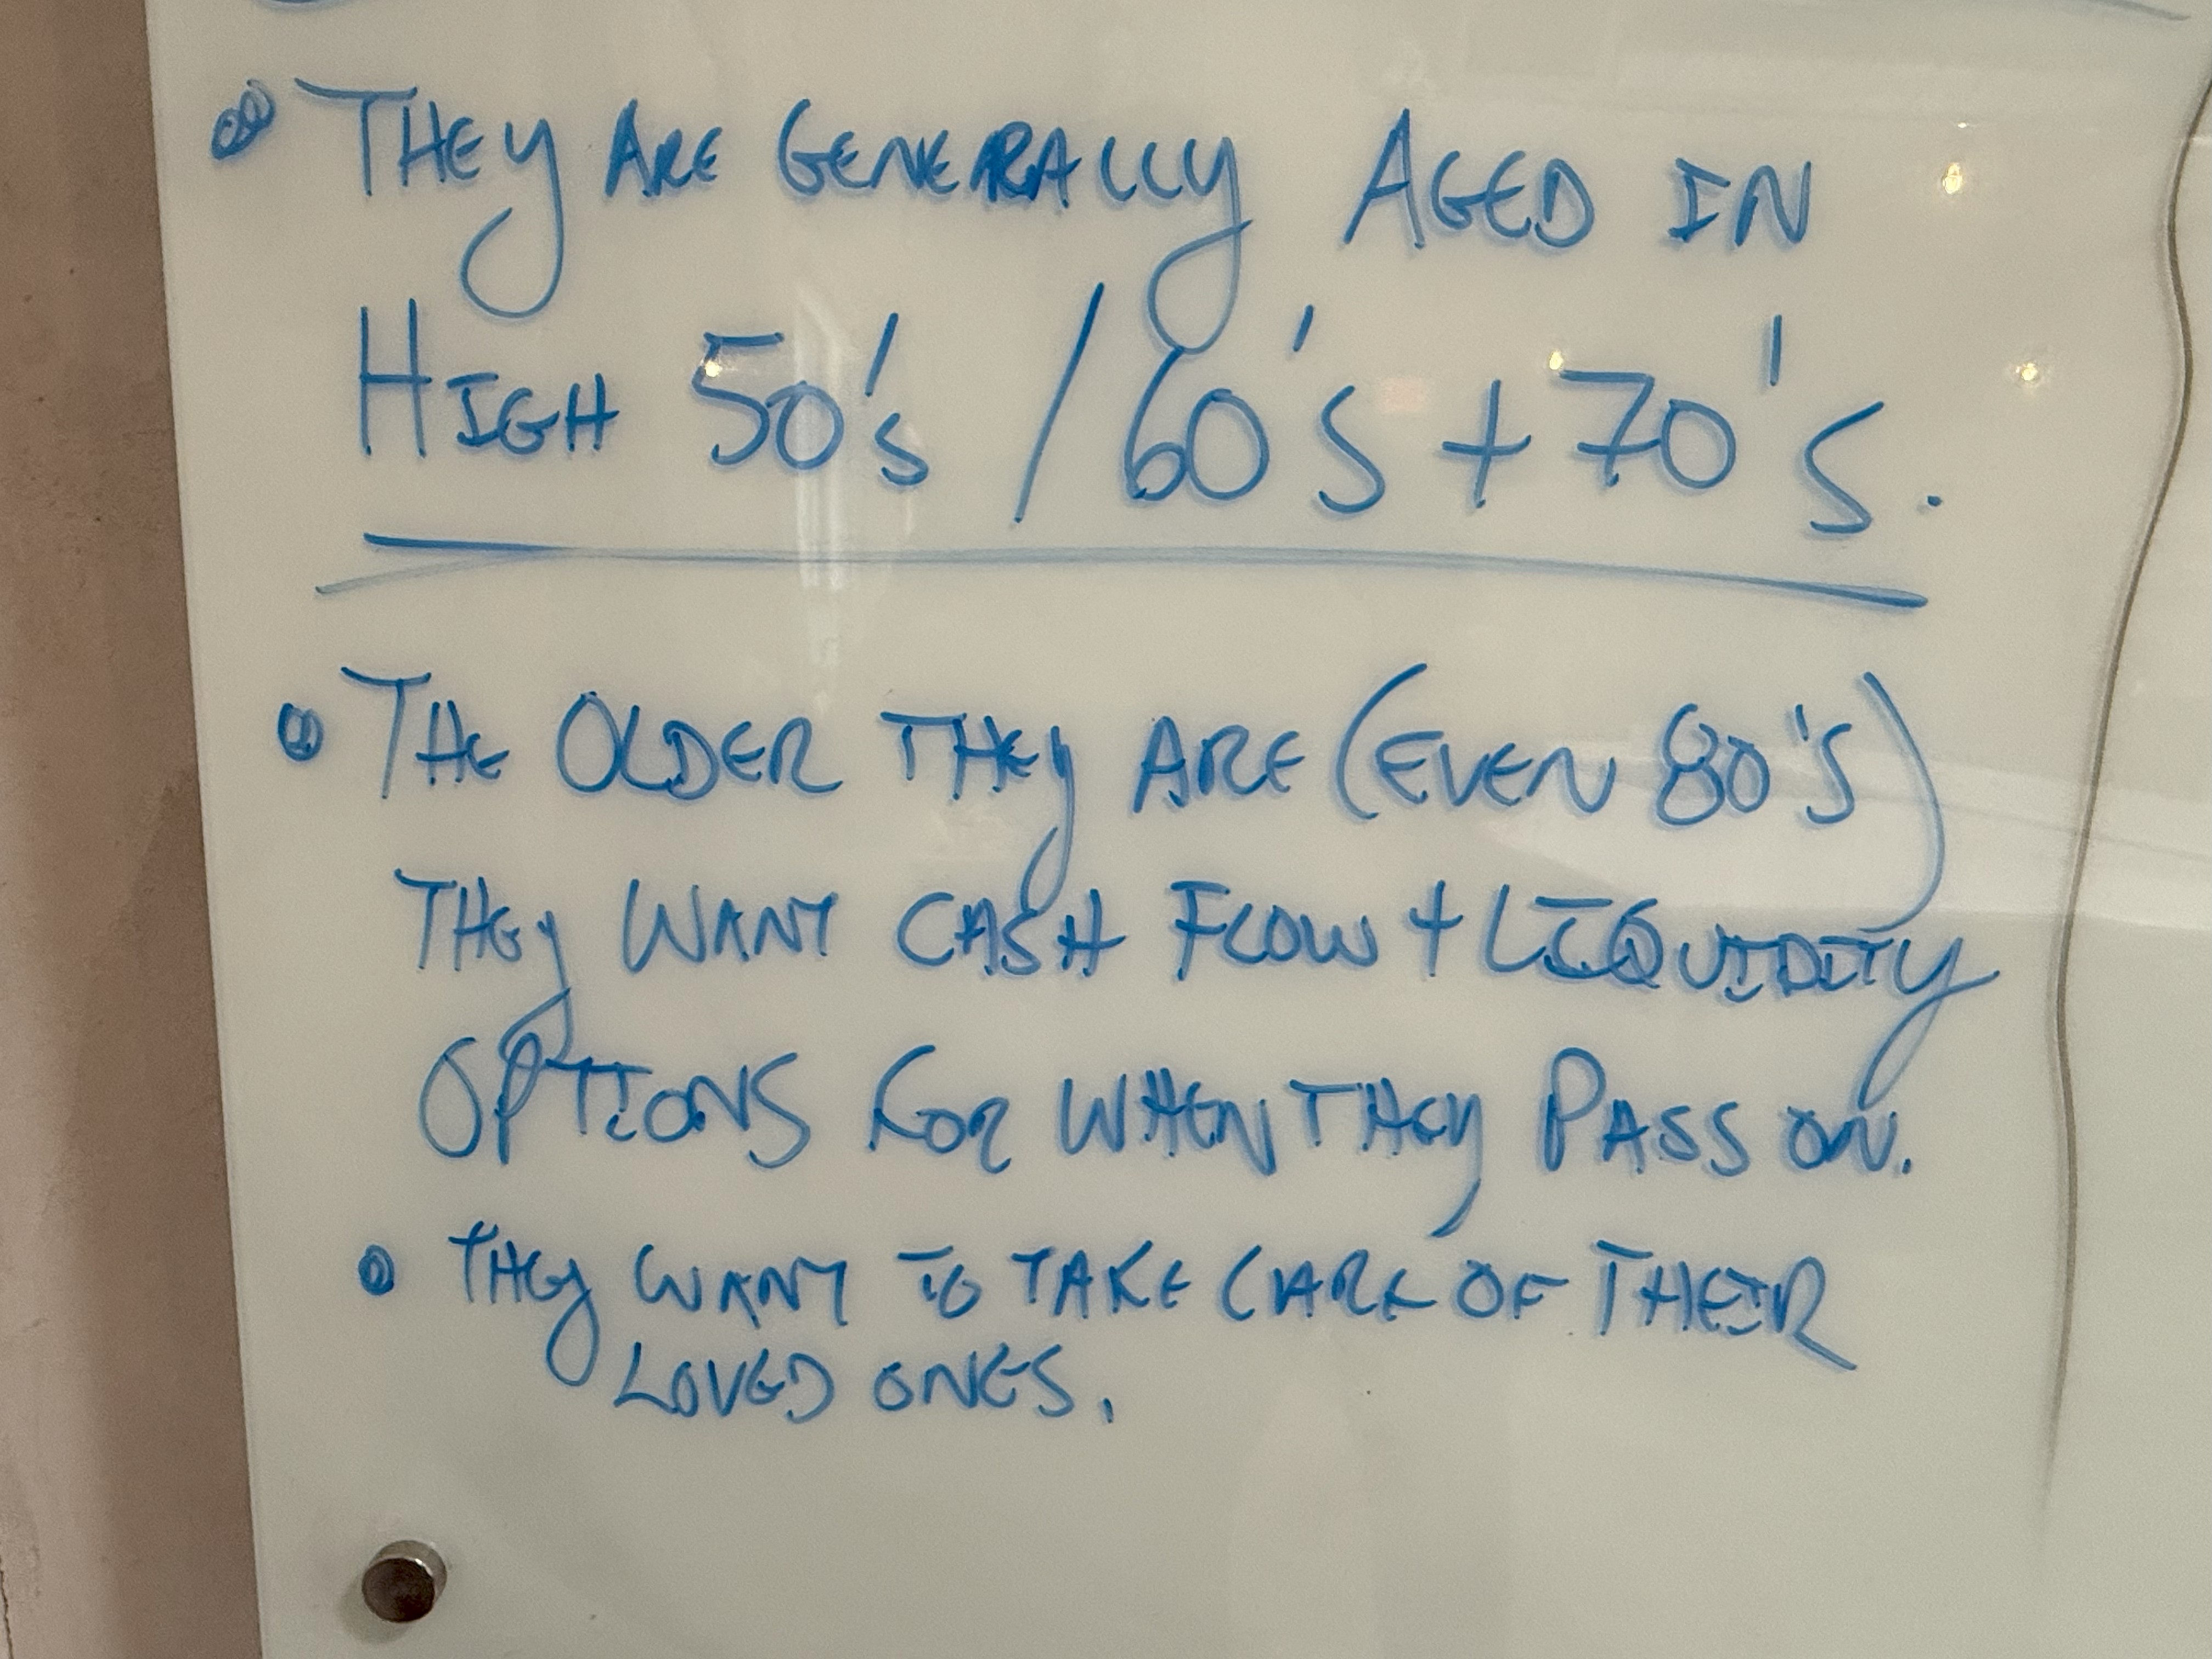 • THEY ARE GENERALLY AGED IN
HIGH 50's / 60's + 70's.
• THE OLDER THEY ARE (EVEN 80's)
THEY WANT CASH FLOW + LIQUIDITY
OPTIONS FOR WHEN THEY PASS ON.
• THEY WANT TO TAKE CARE OF THEIR
LOVED ONES.